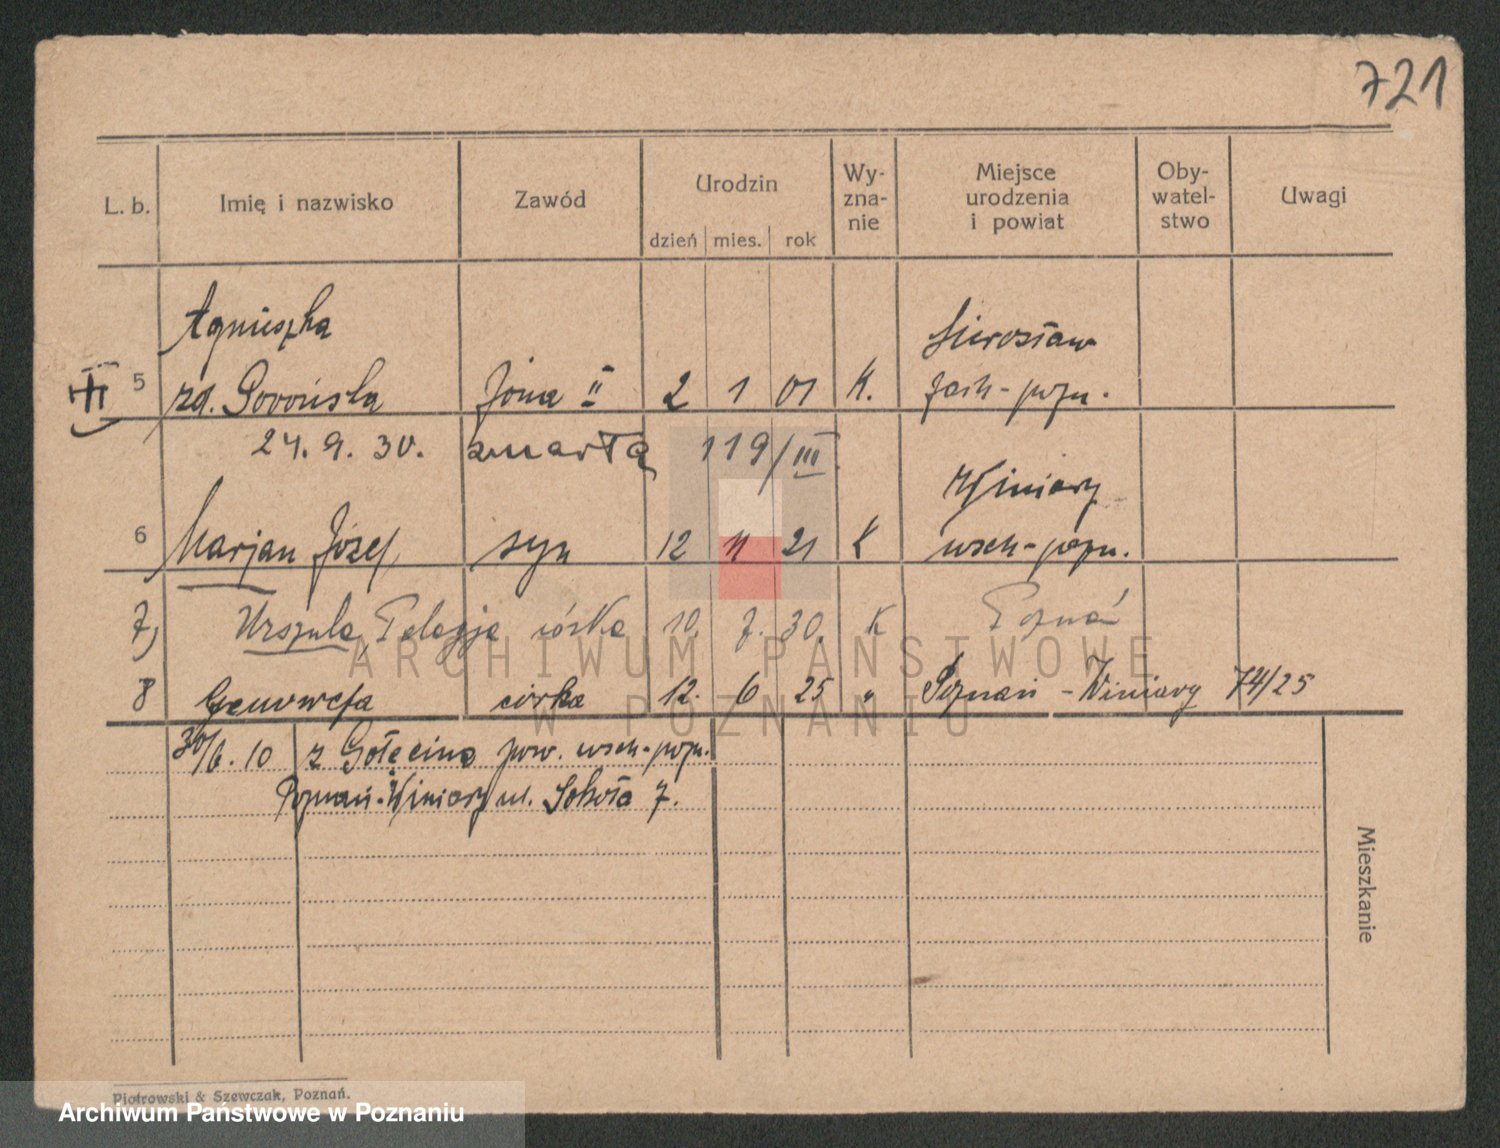 721
L. b.
Imię i nazwisko
Zawód
Urodzin
dzień
mies.
rok
Wy-
zna-
nie
Miejsce
urodzenia
i powiat
Oby-
watel-
stwo
Uwagi
Agnieszka
Sierosław
5 zd. żona II 2 1 01 K. zach-pozn.
24. 9. 30. zmarłą 119/III
Winiary
6 Marjan Józef syn 12 11 21 K wsch-pozn.
7) Urszula Pelagja córka 10. 7. 30. K Poznań
8 Genowefa córka 12. 6 25 " Poznań - Winiary 74/25
30/6. 10 z Gołęcina pow. wsch-pozn.
Poznań-Winiary ul. Sokoła 7.
Mieszkanie
ARCHIWUM PAŃSTWOWE
W POZNANIU
Piotrowski & Szewczak, Poznań.
Archiwum Państwowe w Poznaniu